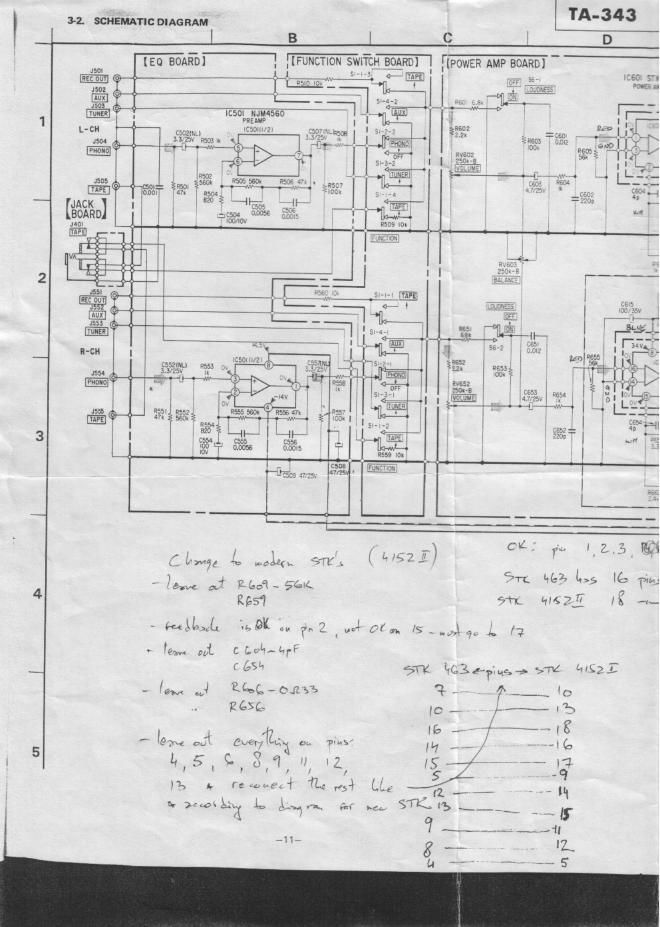 3-2. SCHEMATIC DIAGRAM
TA-343
B
C
D
[EQ BOARD]
[FUNCTION SWITCH BOARD]
[POWER AMP BOARD]
1
2
3
4
5
J501
REC OUT
J502
AUX
J503
TUNER
L-CH
J504
PHONO
J505
TAPE
[JACK BOARD]
J401
TAPE
J551
REC OUT
J552
AUX
J553
TUNER
R-CH
J554
PHONO
J555
TAPE
R510 10k
IC501 NJM4560
PREAMP
IC501(1/2)
C502(NL)
3.3/25V
R503 1k
C507(NL)
3.3/25V
R508
1k
C501
0.001
R501
47k
R502
560k
R504
820
R505 560k
R506 47k
C505
0.0056
C506
0.0015
C504
100/10V
R507
100k
S1-1-3
TAPE
S1-4-2
AUX
S1-2-2
PHONO
OFF
S1-3-2
TUNER
S1-1-4
TAPE
R509 10k
FUNCTION
R601 6.8k
OFF
S6-1
LOUDNESS
ON
R602
2.2k
RV602
250k-B
VOLUME
R603
100k
C601
0.012
C603
4.7/25V
R604
1k
C602
220p
R605
56k
RED
GND
IC601 STK
POWER AM
C604
4p
RV603
250k-B
BALANCE
R560 10k
S1-1-1
TAPE
S1-4-1
AUX
S1-2-1
PHONO
OFF
S1-3-1
TUNER
S1-1-2
TAPE
R559 10k
FUNCTION
C552(NL)
3.3/25V
R553
1k
IC501(1/2)
14.5V
-14V
C557(NL)
3.3/25V
R558
1k
R551
47k
R552
560k
R554
820
C554
100
10V
R555 560k
R556 47k
C555
0.0056
C556
0.0015
R557
100k
C509 47/25V
C508
47/25V
R651
6.8k
LOUDNESS
OFF
ON
S6-2
R652
2.2k
RV652
250k-B
VOLUME
R653
100k
C651
0.012
C653
4.7/25V
R654
1k
C652
220p
RED
R655
56k
GND
C615
100/35V
BLUE
34V
C654
4p
Change to modern STK's (4152 II)
- leave out R609-56K
R659
- feedback is OK on pin 2, not OK on 15 - must go to 17
- leave out C604-4pF
C654
- leave out R606-0Ω33
" R656
- leave out everything on pins:
4, 5, 6, 8, 9, 11, 12,
13 & reconnect the rest like
& according to diagram for new STK
OK: pin 1, 2, 3,
STK 463 has 16 pins
STK 4152II 18
STK 463 ← pins → STK 4152 II
7 — 10
10 — 13
16 — 18
14 — 16
15 — 17
5 — 9
12 — 14
13 — 15
9 — 11
8 — 12
4 — 5
-11-